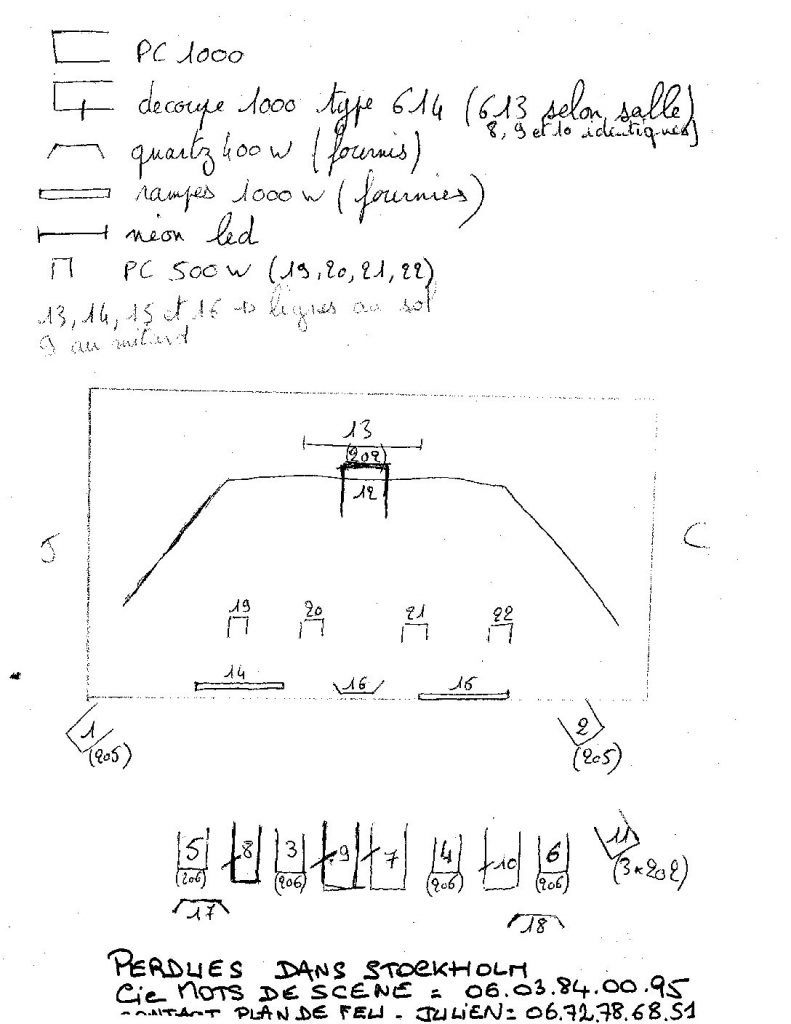 PC 1000
decoupe 1000 type 614 (613 selon salle)
8, 9 et 10 identiques)
quartz 400 w (fournis)
rampes 1000 w (fournies)
néon led
PC 500 W (19, 20, 21, 22)
13, 14, 15 et 16 → lignes au sol
9 au milieu
13
(202)
12
J
C
19 20 21 22
14 16 15
1 2
(205) (205)
5 8 3 9 7 4 10 6 11
(206) (206) (206) (206) (3x202)
17 18
PERDUES DANS STOCKHOLM
Cie MOTS DE SCENE = 06.03.84.00.95
CONTACT PLAN DE FEU - JULIEN = 06.72.78.68.51